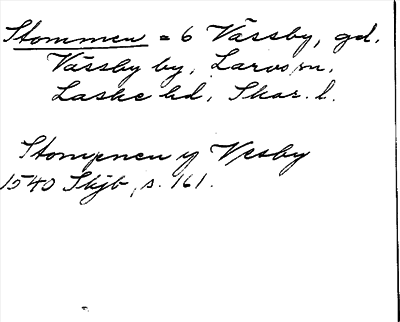 Stommen = 6 Vässby, gd.
Vässby by, Larvs sn,
Laske hd, Skar. l.
Stompnen y Vesby
1540 Skjb, s. 161.